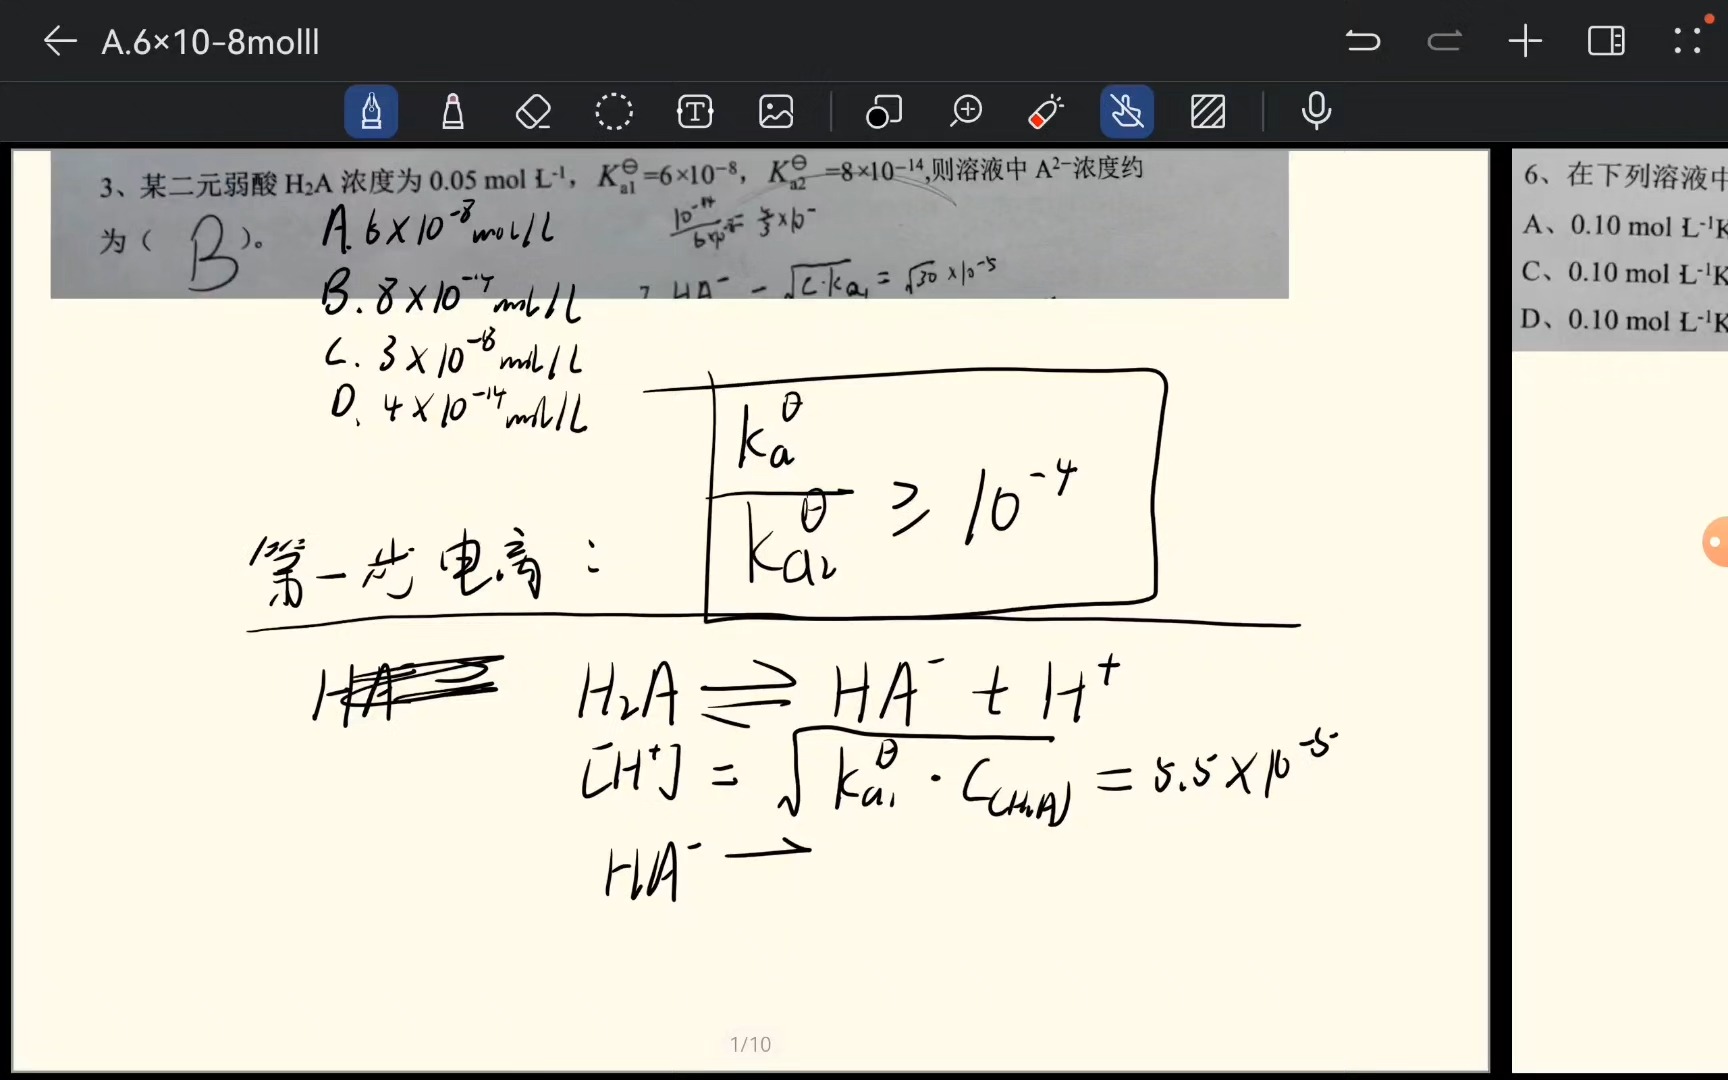 A.6×10-8molll
3、某二元弱酸 H₂A 浓度为 0.05 mol L⁻¹, Kₐ₁^Θ=6×10⁻⁸, Kₐ₂^Θ=8×10⁻¹⁴,则溶液中 A²⁻浓度约
为( B )。
A. 6×10⁻⁸ mol/L
B. 8×10⁻¹⁴ mol/L
C. 3×10⁻⁸ mol/L
D. 4×10⁻¹⁴ mol/L
HA⁻ = √(c·ka₁) = √30 ×10⁻⁵
ka^θ / ka₂^θ ≥ 10⁻⁴
第一步电离:
H₂A ⇌ HA⁻ + H⁺
[H⁺] = √(ka₁^θ · C(H₂A)) = 5.5×10⁻⁵
HA⁻ →
1/10
6、在下列溶液中
A、0.10 mol L⁻¹K
C、0.10 mol L⁻¹K
D、0.10 mol L⁻¹K